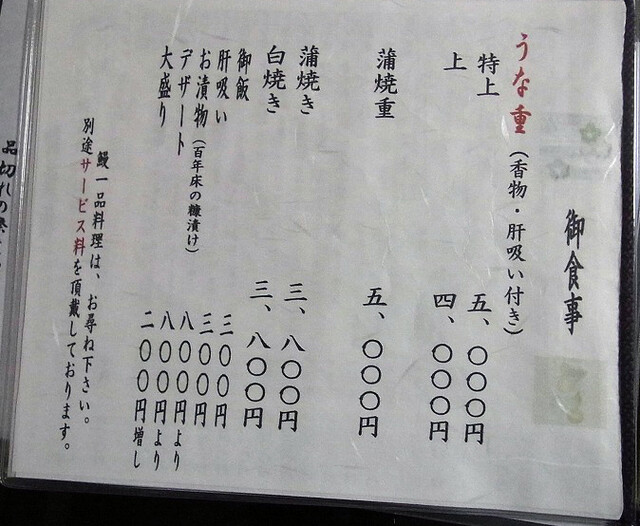 御食事
うな重(香物・肝吸い付き)
特上 五、〇〇〇円
上 四、〇〇〇円
蒲焼重 五、〇〇〇円
蒲焼き 三、八〇〇円
白焼き 三、八〇〇円
御飯 三〇〇円
肝吸い 三〇〇円
お漬物(百年床の糠漬け) 八〇〇円より
デザート 八〇〇円より
大盛り 二〇〇円増し
鰻一品料理は、お尋ね下さい。
別途サービス料を頂戴しております。
品切れの